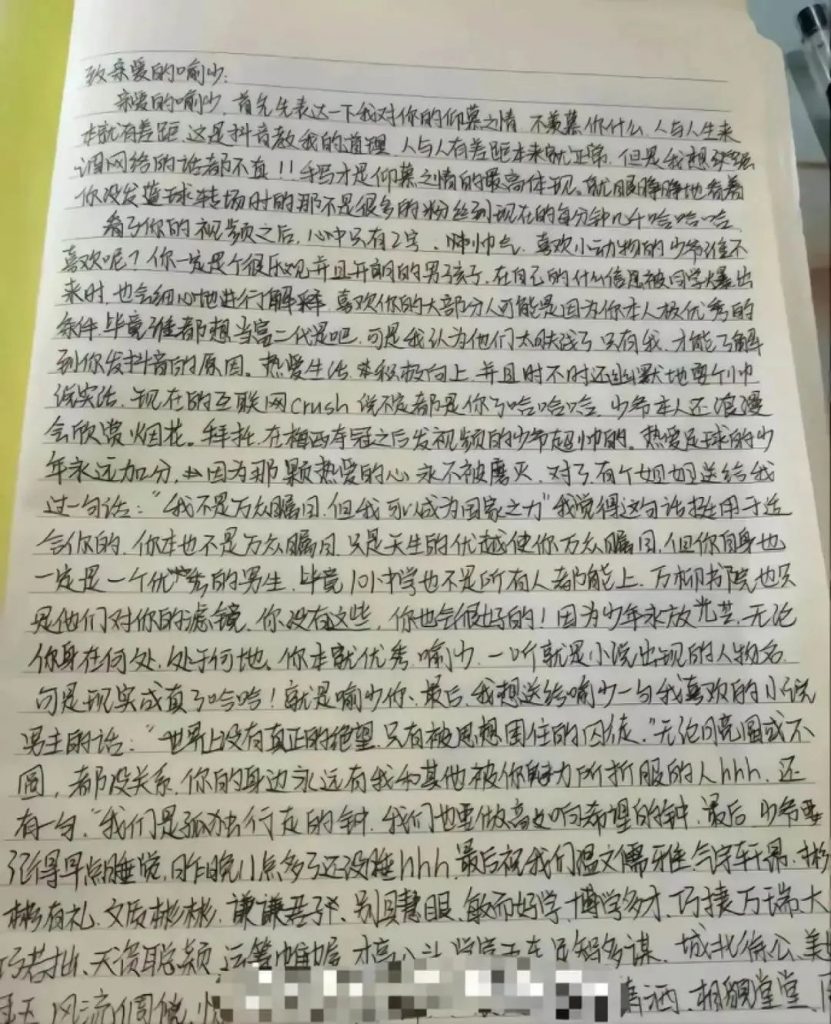 致亲爱的喻少:
亲爱的喻少,首先先表达一下我对你的仰慕之情,不羡慕你什么,人与人生来
本就有差距,这是抖音教我的道理,人与人有差距本来就正常,但是我想强
调网络的话者都不直!!手写才是仰慕之情的最高体现。就眼睁睁地看着
你没发篮球转场时的那不是很多的粉丝到现在的每分钟几千哈哈哈
看了你的视频之后,心中只有2字,帅帅气,喜欢小动物的少爷谁不
喜欢呢?你一定是个很乐观并且开朗的男孩子,在自己的什么信息被同学大爆出
来时,也会细心地进行解释,喜欢你的大部分人可能是因为你本人极优秀的
条件,毕竟谁都想当富二代是吧,可是我认为他们太肤浅了,只有我,才能了解
到你发抖音的原因。热爱生活,积极向上,并且时不时还幽默地耍个小帅
说实话,现在的互联网crush说不定都是你了哈哈哈,少爷本人还浪漫
会欣赏烟花。拜托,在梅西夺冠之后发视频的少爷超帅的。热爱足球的少
年永远加分,因为那颗热爱的心永不被磨灭,对了有个姐姐送给我
过一句话:“我不是万众瞩目,但我可以成为国家之力”我觉得这句话挺用于适
合你的,你本也不是万众瞩目,只是天生的优越使你万众瞩目,但你自身也
一定是一个优秀的男生,毕竟101中学也不是所有人都能上,万柳书院也只
是他们对你的滤镜,你没有这些,你也会很好的!因为少年永放光芒,无论
你身在何处,处于何地,你本就优秀,喻少,一听就是小说出现的人物名
可是现实成真了哈哈!就是喻少你、最后,我想送给喻少一句我喜欢的小说
男主的话:“世界上没有真正的绝望,只有被思想困住的囚徒。”无论月亮圆或不
圆,都没关系,你的身边永远有我和其他被你魅力所折服的人hhh,还
有一句,“我们是孤独行走的钟,我们也要做高处响希望的钟,最后,少爷要
记得早点睡觉,昨晚11点多了还没睡hhh,最后祝我们温文儒雅,气宇轩昂,彬
彬有礼,文质彬彬,谦谦君子,别具慧眼,敏而好学,博学多才,巧捷万端,大
巧若拙,天资聪颖,运筹帷幄,才高八斗,足智多谋,城北徐公,美
风流倜傥,潇洒,相貌堂堂,